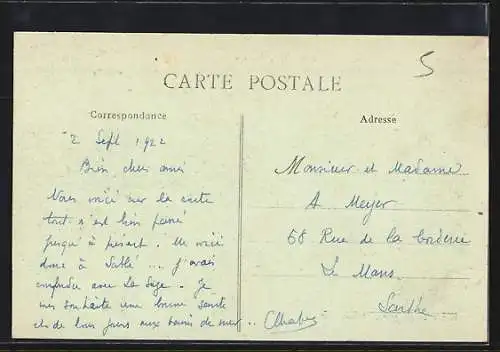 5
CARTE POSTALE
Correspondance
Adresse
2 Sept 1922
Bien chers amis
Nous voici sur la route
tout s'est bien passé
jusqu'à présent. Me voici
donc à Sablé ... J'avais
confondu avec Le Sage. Je
vous souhaite une bonne santé
et de bons jours aux bains de mer..
Monsieur et Madame
A Meyer
68 Rue de la
Le Mans
Sarthe